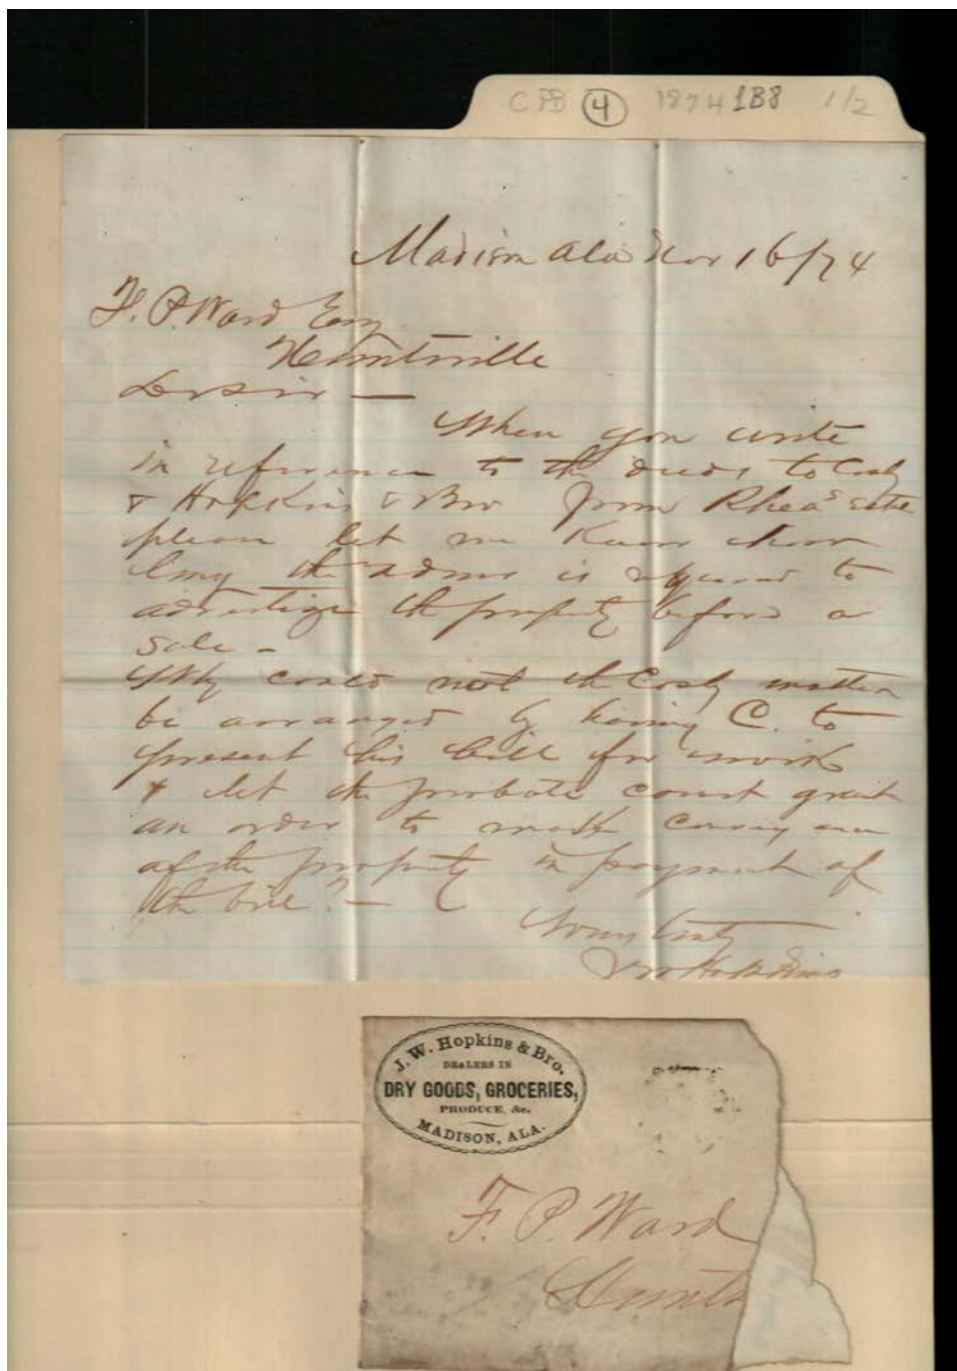 CPB 4 1874 1B8 1/2
Madison Ala Nov 16/74
F. P. Ward Esq
Huntsville
Dr Sir —
When you write
in reference to the deeds to
& Hopkins & Bro from Rhea's Estate
please let me know how
long the admr is required to
advertise the property before a
sale –
Why could not the matter
be arranged by having C. to
present his bill for work
& let the probate court grant
an order to make conveyance
of the property in payment of
the bill? —
Yours truly
J W Hopkins
J. W. Hopkins & Bro.
DEALERS IN
DRY GOODS, GROCERIES,
PRODUCE, &c.
MADISON, ALA.
F. P. Ward
Hunts